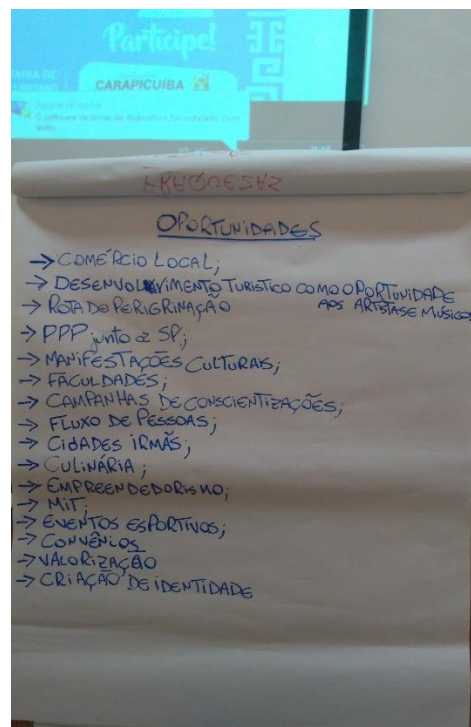 Participe!
CARAPICUÍBA
FRAQUEZAS
OPORTUNIDADES
→ COMÉRCIO LOCAL;
→ DESENVOLVIMENTO TURISTICO COMO OPORTUNIDADE
AOS ARTISTAS E MÚSICOS
→ ROTA DE PERIGRINAÇÃO
→ PPP junto a SP;
→ MANIFESTAÇÕES CULTURAIS;
→ FACULDADES;
→ CAMPANHAS DE CONSCIENTIZAÇÕES;
→ FLUXO DE PESSOAS;
→ CIDADES IRMÃS;
→ CULINÁRIA;
→ EMPREENDEDORISMO;
→ MiT;
→ EVENTOS ESPORTIVOS;
→ CONVÊNIOS
→ VALORIZAÇÃO
→ CRIAÇÃO DE IDENTIDADE